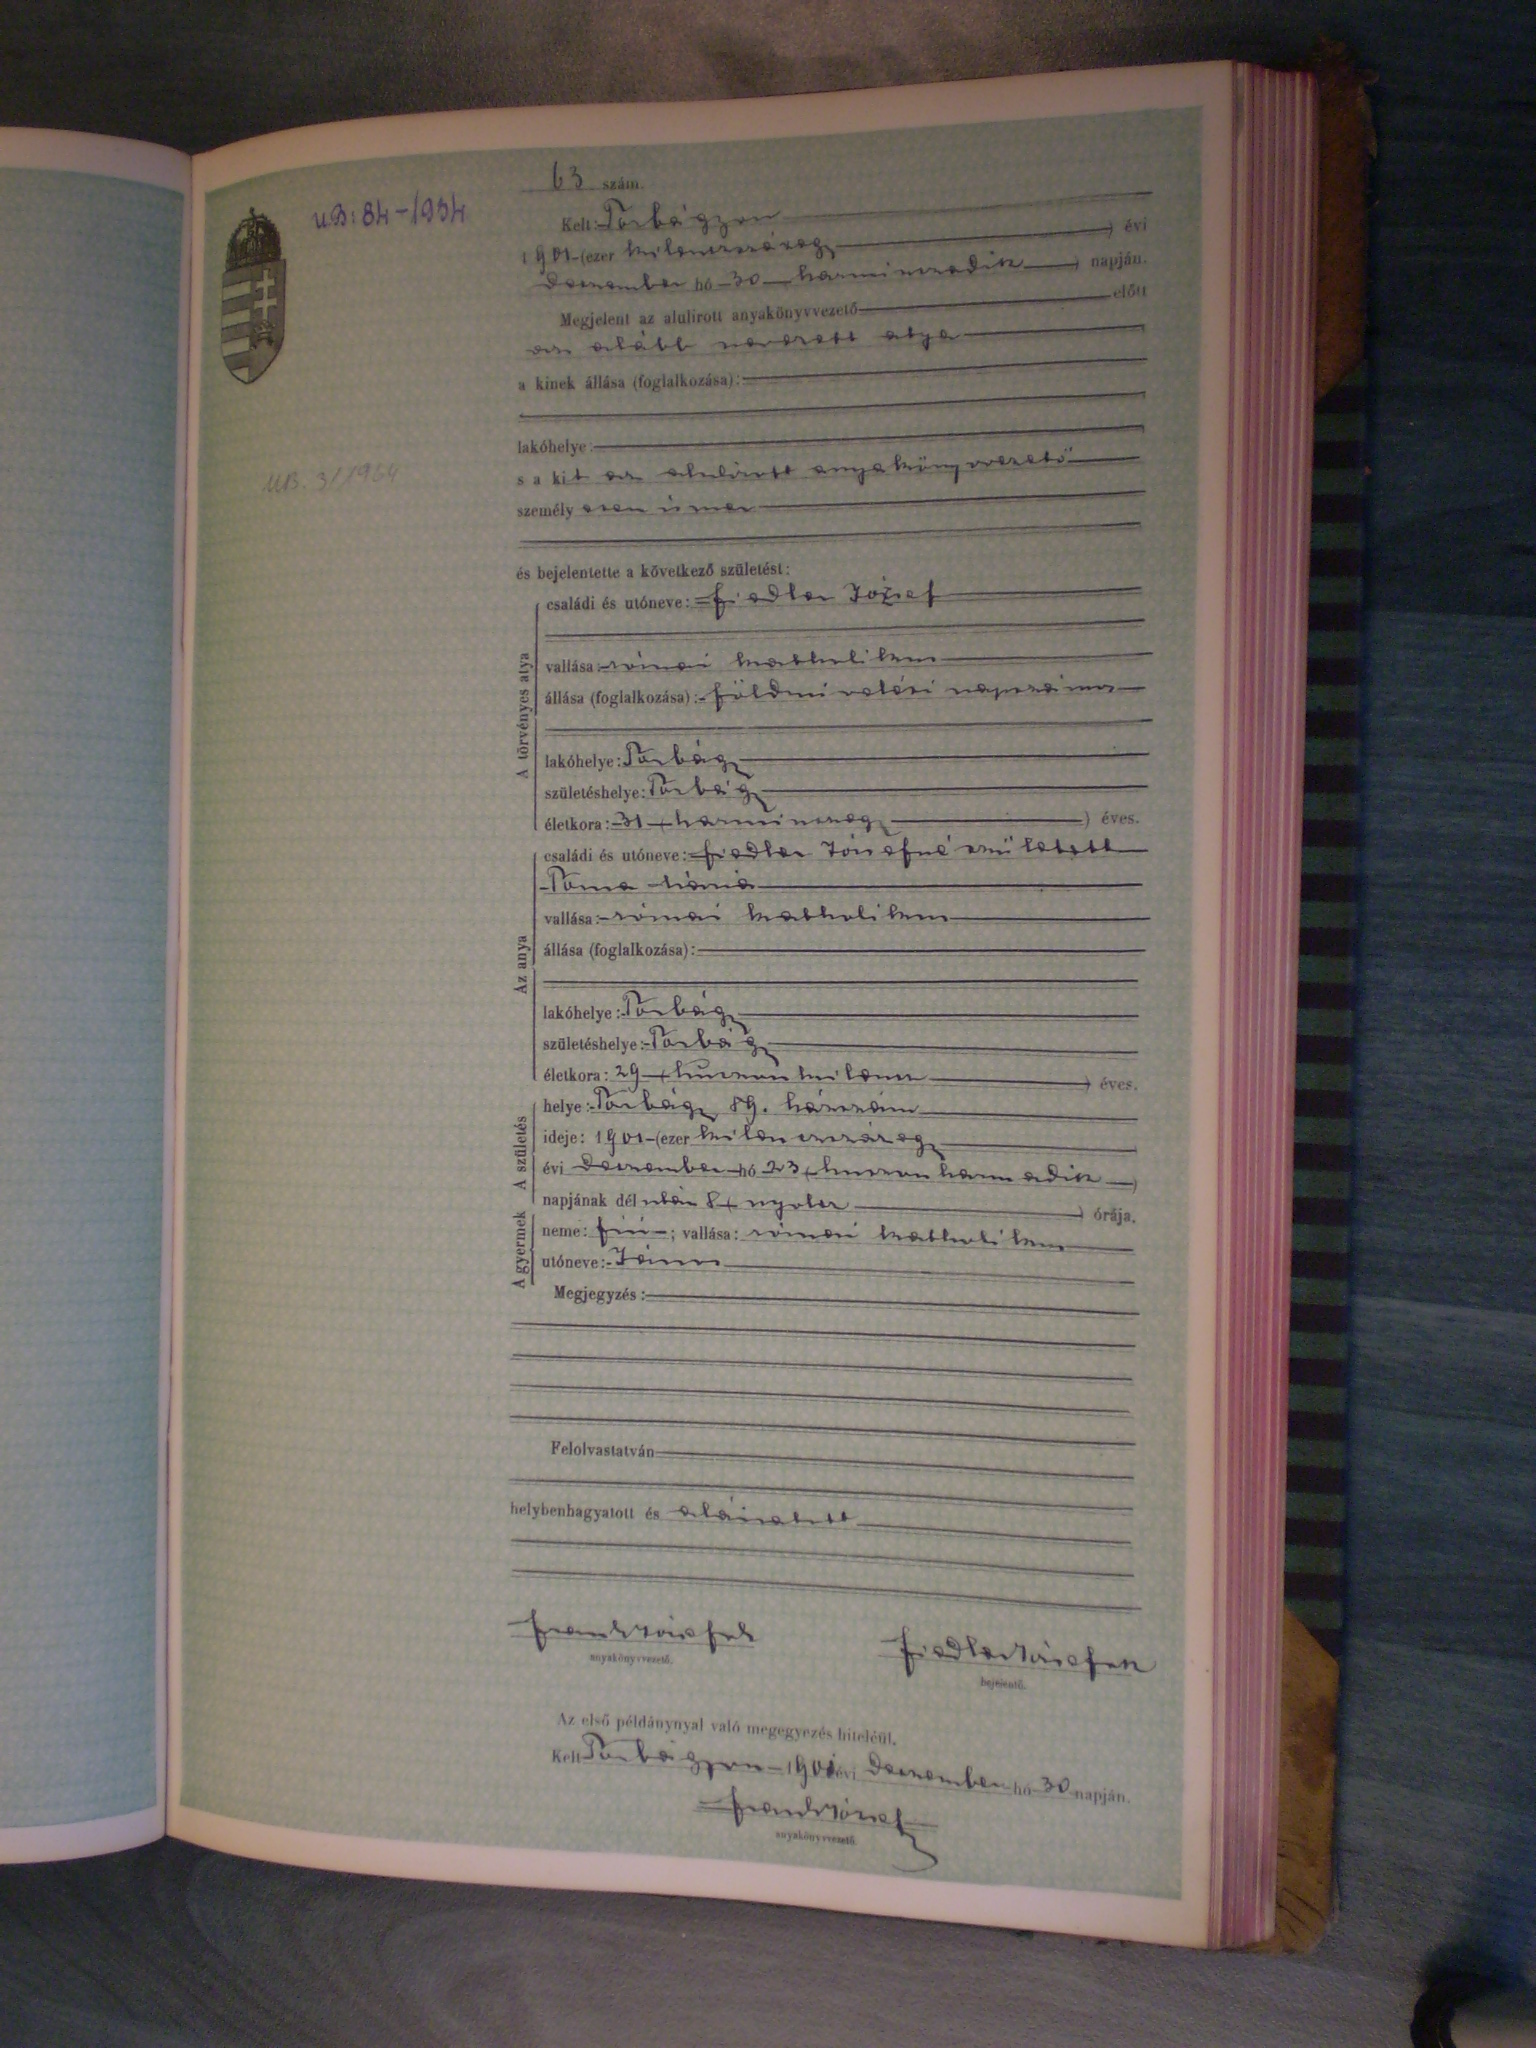 63 szám.
U.B: 84-1934
Kelt: Torbágyon
1901 (ezer kilenczszázegy ) évi
deczember hó 30 harminczadik ) napján.
Megjelent az alulirott anyakönyvvezető előtt
az alább nevezett atya
a kinek állása (foglalkozása):
lakóhelye:
UB. 31/1964
s a kit az alulirott anyakönyvvezető
személyesen ismer
és bejelentette a következő születést:
A törvényes atya
családi és utóneve: Fiedler József
vallása: római katholikus
állása (foglalkozása): földmivelési napszámos
lakóhelye: Torbágy
születéshelye: Torbágy
életkora: 31 (harminczegy ) éves.
Az anya
családi és utóneve: Fiedler Józsefné született
Mária
vallása: római katholikus
állása (foglalkozása):
lakóhelye: Torbágy
születéshelye: Torbágy
életkora: 29 (huszonkilencz ) éves.
A születés
helye: Torbágy 89. házszám
ideje: 1901 (ezer kilenczszázegy
évi deczember hó 23 (huszonharmadik )
napjának dél után 8 (nyolcz ) órája.
A gyermek
neme: fiú ; vallása: római katholikus
utóneve: János
Megjegyzés:
Felolvastatván
helybenhagyatott és aláiratott
Frank József
anyakönyvvezető.
Fiedler József
bejelentő.
Az első példánynyal való megegyezés hiteléül.
Kelt Torbágyon 1901 évi deczember hó 30 napján.
Frank József
anyakönyvvezető.